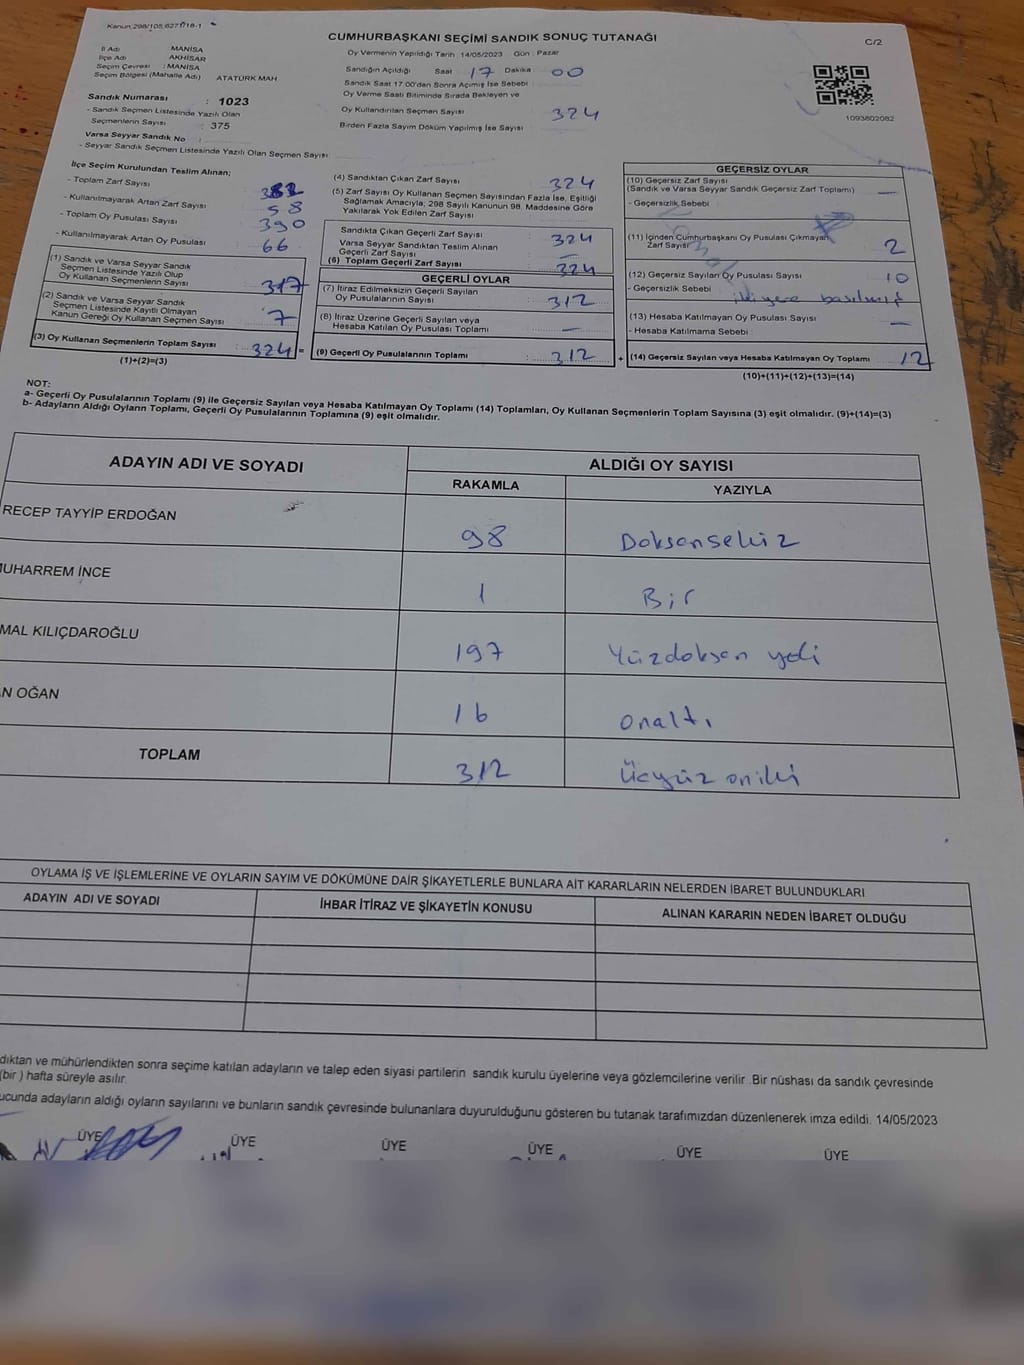 Kanun 298/105,6271/18-1
CUMHURBAŞKANI SEÇİMİ SANDIK SONUÇ TUTANAĞI
C/2
İl Adı MANİSA
İlçe Adı AKHİSAR
Seçim Çevresi : MANİSA
Seçim Bölgesi (Mahalle Adı) ATATÜRK MAH.
Sandık Numarası : 1023
- Sandık Seçmen Listesinde Yazılı Olan
Seçmenlerin Sayısı : 375
Varsa Seyyar Sandık No :
- Seyyar Sandık Seçmen Listesinde Yazılı Olan Seçmen Sayısı
Oy Vermenin Yapıldığı Tarih : 14/05/2023 Gün : Pazar
Sandığın Açıldığı Saat 17 Dakika 00
Sandık Saat 17.00'dan Sonra Açılmış İse Sebebi
Oy Verme Saati Bitiminde Sırada Bekleyen ve
Oy Kullandırılan Seçmen Sayısı 324
Birden Fazla Sayım Döküm Yapılmış İse Sayısı
1093802082
İlçe Seçim Kurulundan Teslim Alınan;
- Toplam Zarf Sayısı
- Kullanılmayarak Artan Zarf Sayısı 58
- Toplam Oy Pusulası Sayısı 390
- Kullanılmayarak Artan Oy Pusulası 66
(1) Sandık ve Varsa Seyyar Sandık
Seçmen Listesinde Yazılı Olup
Oy Kullanan Seçmenlerin Sayısı 317
(2) Sandık ve Varsa Seyyar Sandık
Seçmen Listesinde Kayıtlı Olmayan
Kanun Gereği Oy Kullanan Seçmen Sayısı 7
(3) Oy Kullanan Seçmenlerin Toplam Sayısı : 324 =
(1)+(2)=(3)
(4) Sandıktan Çıkan Zarf Sayısı 324
(5) Zarf Sayısı Oy Kullanan Seçmen Sayısından Fazla İse, Eşitliği
Sağlamak Amacıyla, 298 Sayılı Kanunun 98. Maddesine Göre
Yakılarak Yok Edilen Zarf Sayısı
Sandıkta Çıkan Geçerli Zarf Sayısı 324
Varsa Seyyar Sandıktan Teslim Alınan
Geçerli Zarf Sayısı –
(6) Toplam Geçerli Zarf Sayısı 324
GEÇERLİ OYLAR
(7) İtiraz Edilmeksizin Geçerli Sayılan
Oy Pusulalarının Sayısı 312
(8) İtiraz Üzerine Geçerli Sayılan veya
Hesaba Katılan Oy Pusulası Toplamı –
(9) Geçerli Oy Pusulalarının Toplamı : 312 +
GEÇERSİZ OYLAR
(10) Geçersiz Zarf Sayısı
(Sandık ve Varsa Seyyar Sandık Geçersiz Zarf Toplamı) –
- Geçersizlik Sebebi
(11) İçinden Cumhurbaşkanı Oy Pusulası Çıkmayan
Zarf Sayısı 2
(12) Geçersiz Sayılan Oy Pusulası Sayısı 10
- Geçersizlik Sebebi iki yere basılmış
(13) Hesaba Katılmayan Oy Pusulası Sayısı –
- Hesaba Katılmama Sebebi :
(14) Geçersiz Sayılan veya Hesaba Katılmayan Oy Toplamı 12
(10)+(11)+(12)+(13)=(14)
NOT:
a- Geçerli Oy Pusulalarının Toplamı (9) ile Geçersiz Sayılan veya Hesaba Katılmayan Oy Toplamı (14) Toplamları, Oy Kullanan Seçmenlerin Toplam Sayısına (3) eşit olmalıdır. (9)+(14)=(3)
b- Adayların Aldığı Oyların Toplamı, Geçerli Oy Pusulalarının Toplamına (9) eşit olmalıdır.
ADAYIN ADI VE SOYADI ALDIĞI OY SAYISI
RAKAMLA YAZIYLA
RECEP TAYYİP ERDOĞAN 98 Doksansekiz
MUHARREM İNCE 1 Bir
MAL KILIÇDAROĞLU 197 Yüzdoksan yedi
AN OĞAN 16 onaltı
TOPLAM 312 üçyüz oniki
OYLAMA İŞ VE İŞLEMLERİNE VE OYLARIN SAYIM VE DÖKÜMÜNE DAİR ŞİKAYETLERLE BUNLARA AİT KARARLARIN NELERDEN İBARET BULUNDUKLARI
ADAYIN ADI VE SOYADI İHBAR İTİRAZ VE ŞİKAYETİN KONUSU ALINAN KARARIN NEDEN İBARET OLDUĞU
dıktan ve mühürlendikten sonra seçime katılan adayların ve talep eden siyasi partilerin sandık kurulu üyelerine veya gözlemcilerine verilir .Bir nüshası da sandık çevresinde
(bir ) hafta süreyle asılır.
ucunda adayların aldığı oyların sayılarını ve bunların sandık çevresinde bulunanlara duyurulduğunu gösteren bu tutanak tarafımızdan düzenlenerek imza edildi. 14/05/2023
ÜYE ÜYE ÜYE ÜYE ÜYE ÜYE